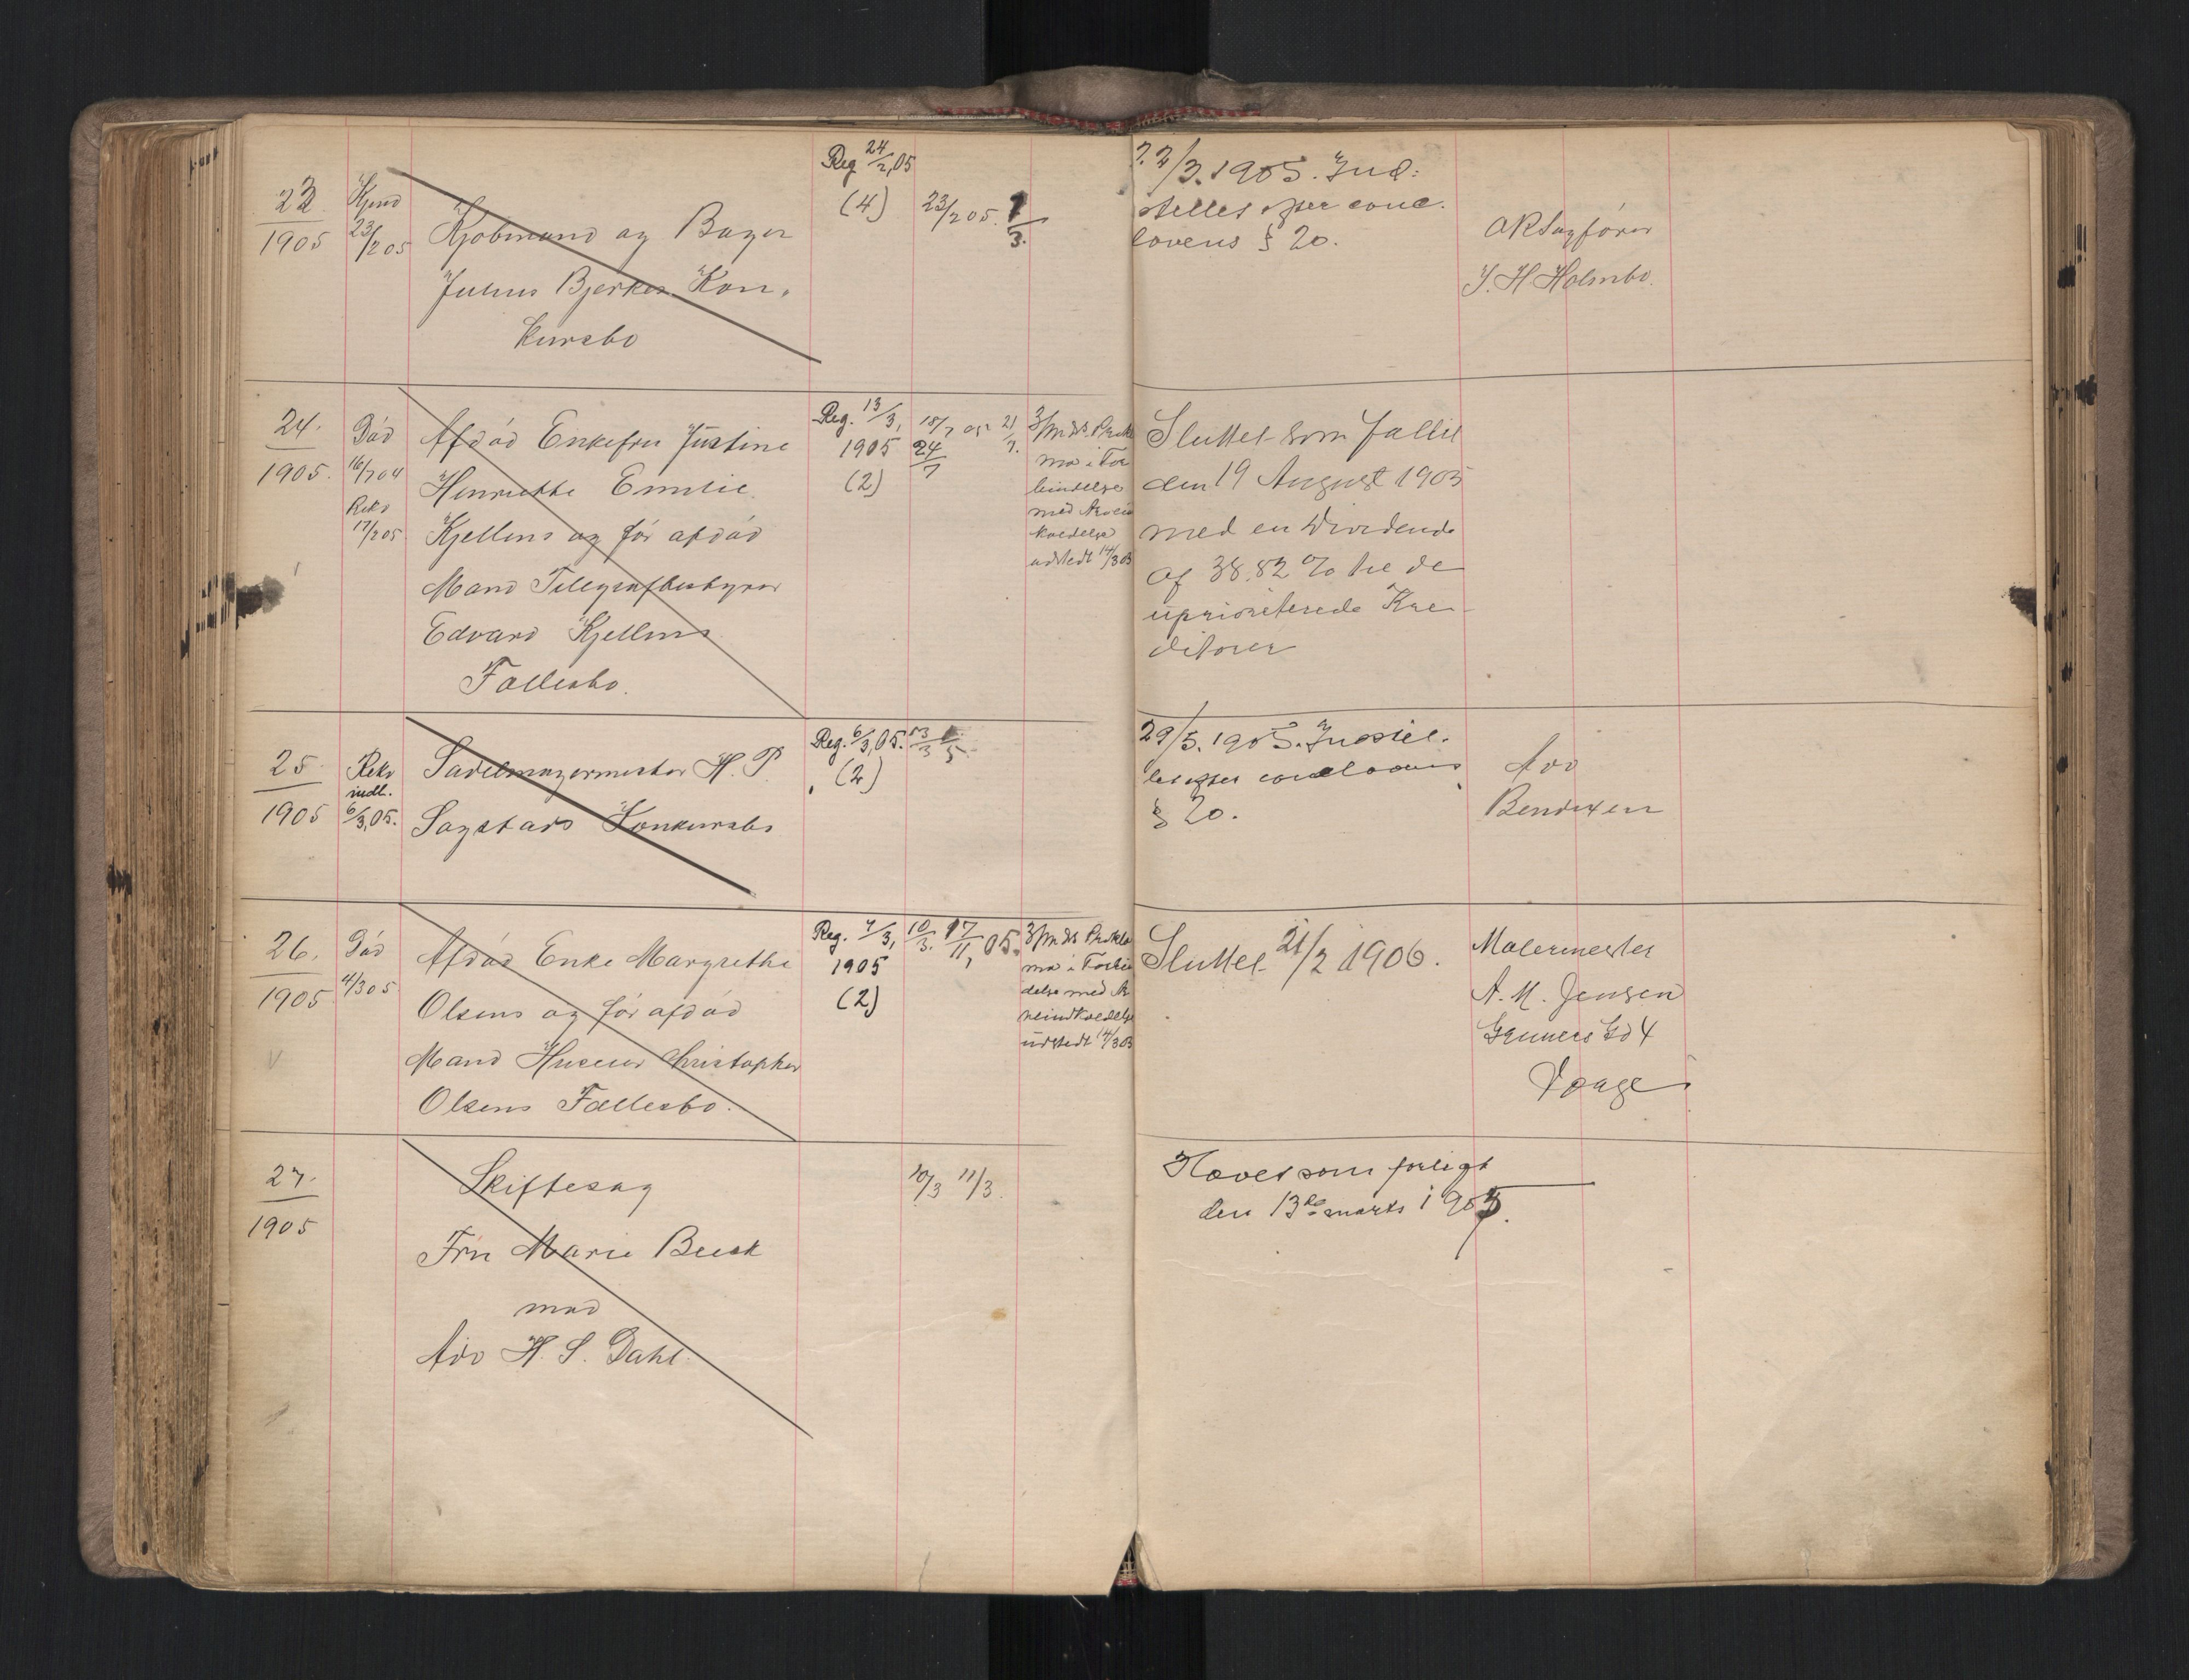 23.
1905
Kjend
23/2 05
Kjøbmand og Bager
Julius Bjerkes Kon-
kursbo
Reg 24/2,05
(4)
23/2 05.
1/3.
22/3.1905. Ind:
stelles efter conc.
lovens § 20.
ORSagfører
J. H Holmbo.
24.
1905.
Død
16/7 04
Rekv
17/2 05
Afdød Enkefru Justine
Henriette Emilie
Kjellins og før afdød
Mand Telegrafbestyrer
Edvard Kjellins
Fællesbo.
Reg. 13/3,
1905
(2)
18/7 05
24/7
21/7.
3 Mds. Prokla
ma i For
bindelse
med Arvein
kaldelse
udstedt 14/3 05
Sluttet som fallit
den 19 August 1905
med en Dividende
af 38.82 % til de
uprioriterede Kre-
ditorer
25.
1905
Rekv
indl.
6/3,05.
Sadelmagermester H. P.
Sagstads Konkursbo
Reg. 6/3,05.
(2)
13/3
29/5.1905. Indstil-
les efter conclovens
§ 20.
Adv
Bendixen
26.
1905
Død
4/3 05
Afdød Enke Margrethe
Olsens og før afdød
Mand Huseier Christopher
Olsens Fællesbo.
Reg. 7/3,
1905
(2)
10/3.
17/11, 05.
3 Mds Prokla
ma i Forbin
delse med Ar
veindkaldelse
udstedt 14/3 05
Sluttet 21/2 1906.
Malermester
A. M. Jensen
Gd 4
27.
1905
Skiftesag
Fru Marie Beck
mod
Adv H. S. Dahl.
10/3 11/3.
Hævet som forligt
den 13de marts 1905.